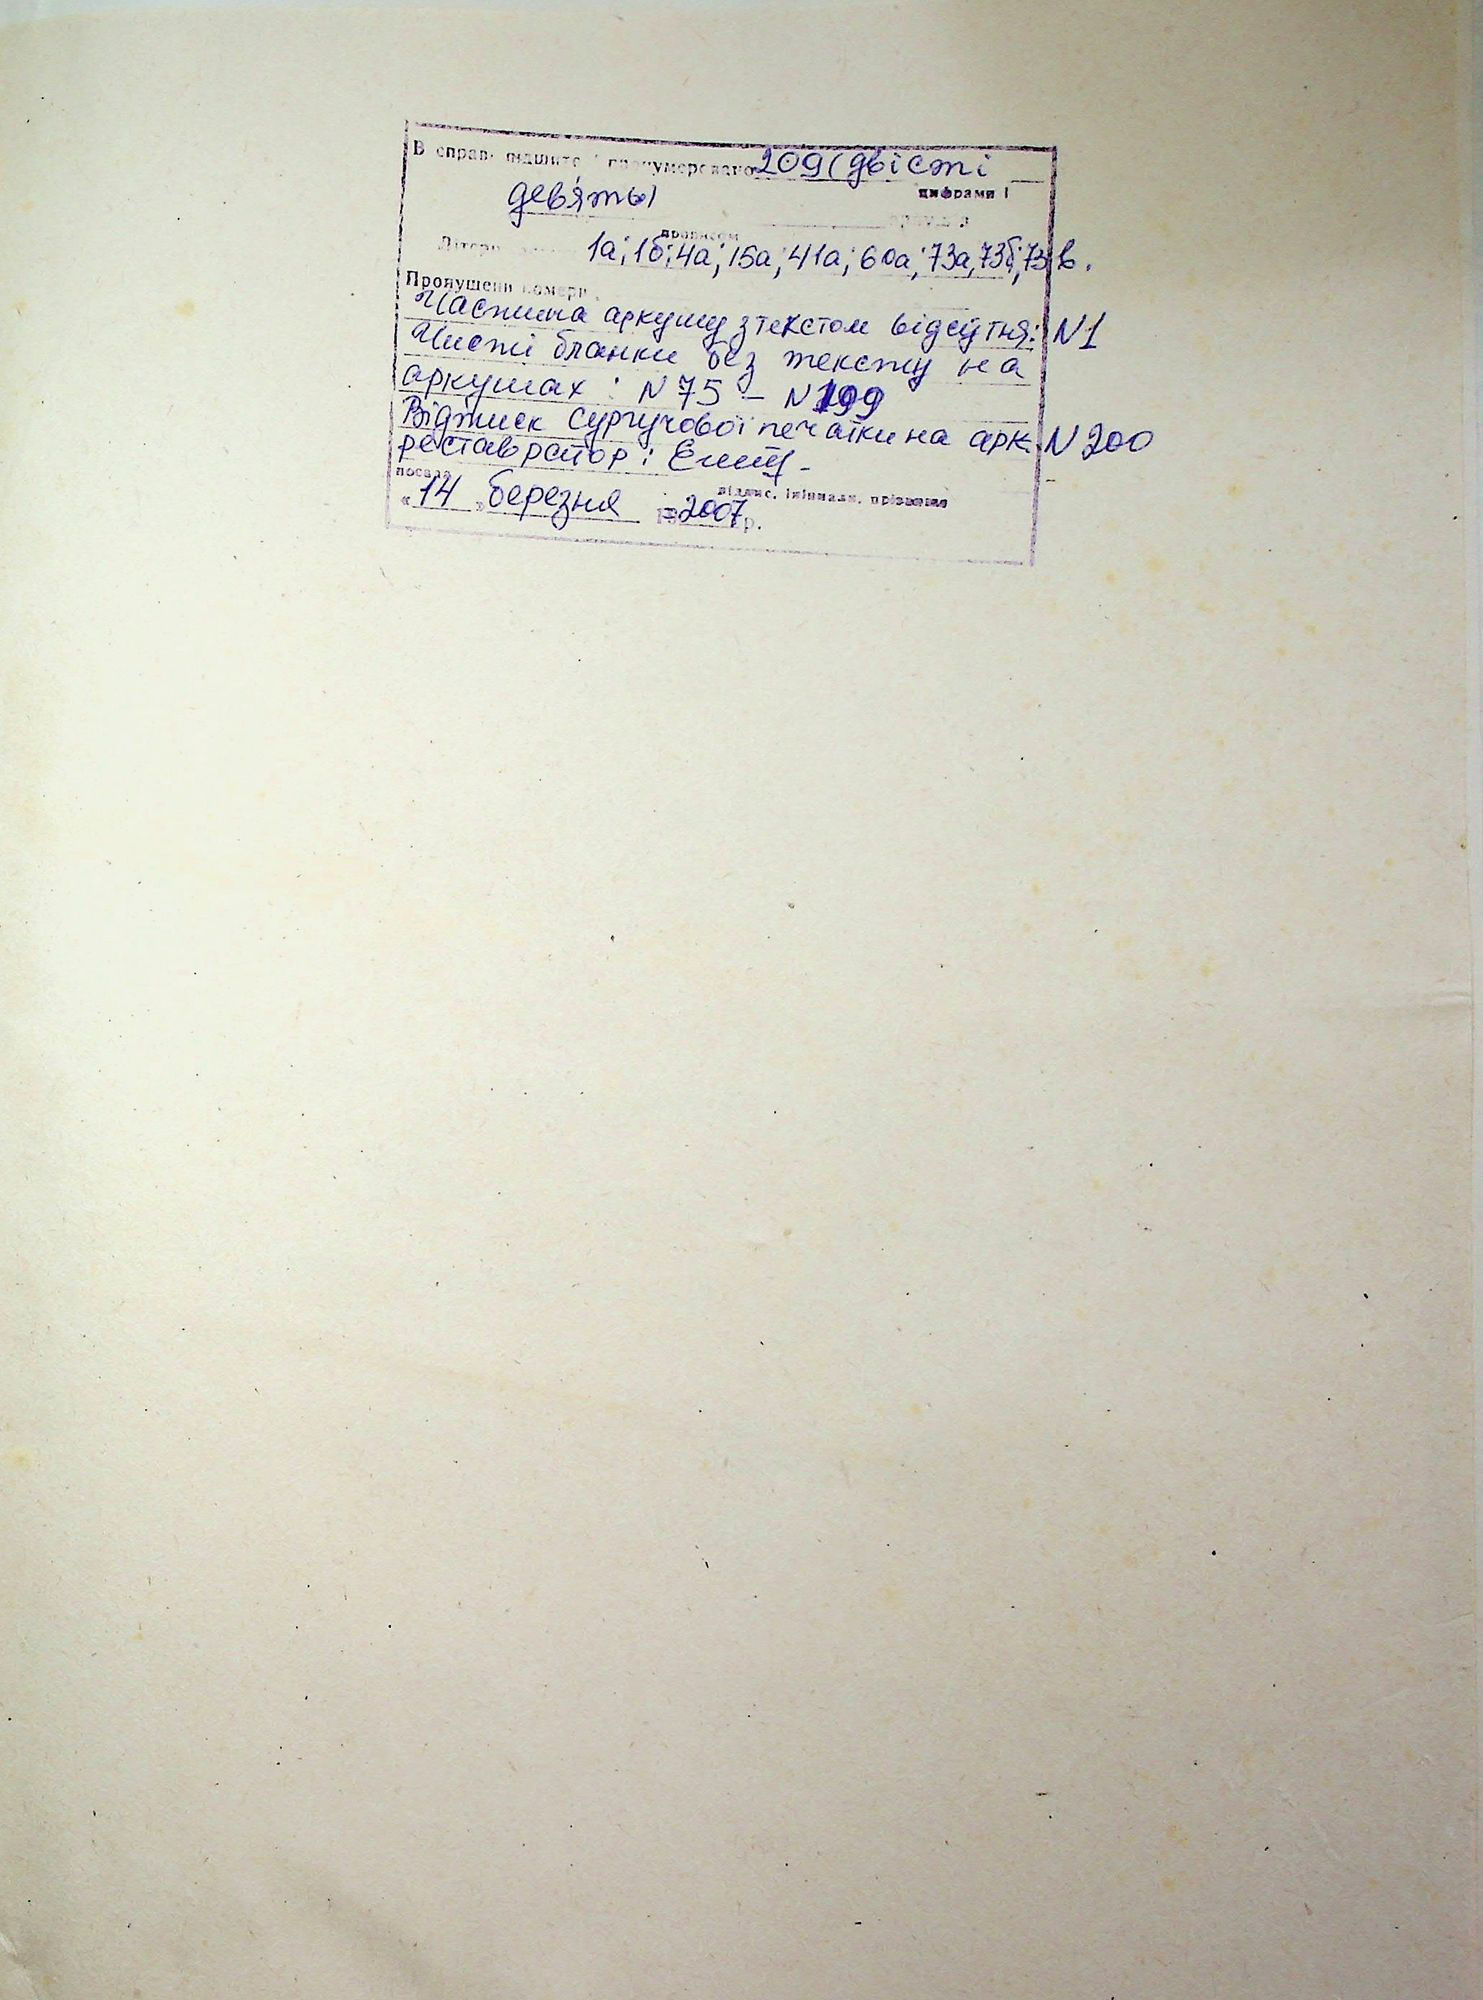 В справі підшито і пронумеровано 209 (двісті
цифрами і
девʼять)
прописом
Літерні 1а; 1б; 4а; 15а; 41а; 60а; 73а, 73б; 73в.
Пропущені номери
Частина аркушу з текстом відсутня: N1
Чисті бланки без тексту на
аркушах: N 75 – N 199
Відтиск сургучової печатки на арк. N 200
реставратор:
посада
підпис, ініціали, прізвище
"14" березня 2007 р.